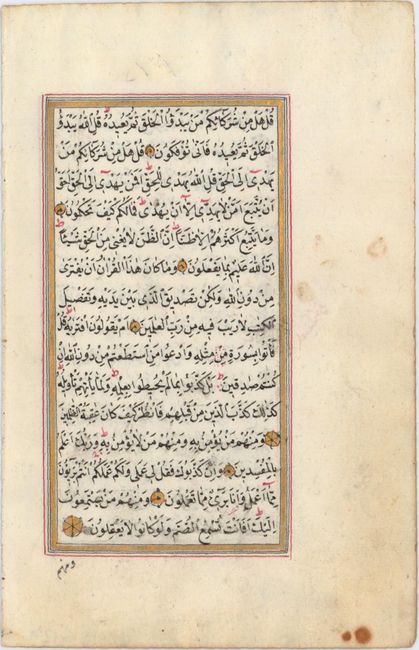 قُلْ هَلْ مِنْ شُرَكَائِكُمْ مَنْ يَبْدَؤُا الْخَلْقَ ثُمَّ يُعِيدُهُ قُلِ اللّٰهُ يَبْدَؤُا
الْخَلْقَ ثُمَّ يُعِيدُهُ فَاَنّٰى تُؤْفَكُونَ قُلْ هَلْ مِنْ شُرَكَائِكُمْ مَنْ
يَهْدٖى اِلَى الْحَقِّ قُلِ اللّٰهُ يَهْدٖى لِلْحَقِّ اَفَمَنْ يَهْدٖى اِلَى الْحَقِّ اَحَقُّ
اَنْ يُتَّبَعَ اَمَّنْ لَا يَهِدّٖى اِلَّا اَنْ يُهْدٰى فَمَا لَكُمْ كَيْفَ تَحْكُمُونَ
وَمَا يَتَّبِعُ اَكْثَرُهُمْ اِلَّا ظَنًّا اِنَّ الظَّنَّ لَا يُغْنٖى مِنَ الْحَقِّ شَيْئًا
اِنَّ اللّٰهَ عَلٖيمٌ بِمَا يَفْعَلُونَ وَمَا كَانَ هٰذَا الْقُرْاٰنُ اَنْ يُفْتَرٰى
مِنْ دُونِ اللّٰهِ وَلٰكِنْ تَصْدٖيقَ الَّذٖى بَيْنَ يَدَيْهِ وَتَفْصٖيلَ
الْكِتَابِ لَا رَيْبَ فٖيهِ مِنْ رَبِّ الْعَالَمٖينَ اَمْ يَقُولُونَ افْتَرٰيهُ قُلْ
فَأْتُوا بِسُورَةٍ مِثْلِهٖ وَادْعُوا مَنِ اسْتَطَعْتُمْ مِنْ دُونِ اللّٰهِ اِنْ
كُنْتُمْ صَادِقٖينَ بَلْ كَذَّبُوا بِمَا لَمْ يُحٖيطُوا بِعِلْمِهٖ وَلَمَّا يَأْتِهِمْ تَأْوٖيلُهُ
كَذٰلِكَ كَذَّبَ الَّذٖينَ مِنْ قَبْلِهِمْ فَانْظُرْ كَيْفَ كَانَ عَاقِبَةُ الظَّالِمٖينَ
وَمِنْهُمْ مَنْ يُؤْمِنُ بِهٖ وَمِنْهُمْ مَنْ لَا يُؤْمِنُ بِهٖ وَرَبُّكَ اَعْلَمُ
بِالْمُفْسِدٖينَ وَاِنْ كَذَّبُوكَ فَقُلْ لٖى عَمَلٖى وَلَكُمْ عَمَلُكُمْ اَنْتُمْ بَرٖيؤُنَ
مِمَّا اَعْمَلُ وَاَنَا بَرٖىءٌ مِمَّا تَعْمَلُونَ وَمِنْهُمْ مَنْ يَسْتَمِعُونَ
اِلَيْكَ اَفَاَنْتَ تُسْمِعُ الصُّمَّ وَلَوْ كَانُوا لَا يَعْقِلُونَ
ومنهم